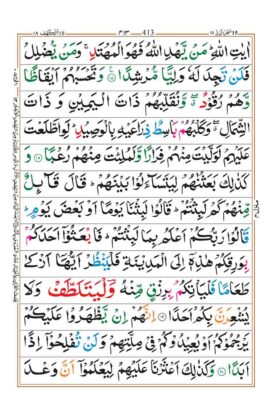 413
اٰيٰتِ اللّٰهِ ؕ مَنْ يَّهْدِ اللّٰهُ فَهُوَ الْمُهْتَدِ ۚ وَمَنْ يُّضْلِلْ
فَلَنْ تَجِدَ لَهٗ وَلِيًّا مُّرْشِدًا ۞ وَتَحْسَبُهُمْ اَيْقَاظًا
وَّهُمْ رُقُوْدٌ ۖ وَّنُقَلِّبُهُمْ ذَاتَ الْيَمِيْنِ وَ ذَاتَ
الشِّمَالِ ۖ وَكَلْبُهُمْ بَاسِطٌ ذِرَاعَيْهِ بِالْوَصِيْدِ ؕ لَوِ اطَّلَعْتَ
عَلَيْهِمْ لَوَلَّيْتَ مِنْهُمْ فِرَارًا وَّلَمُلِئْتَ مِنْهُمْ رُعْبًا ۞ وَ
كَذٰلِكَ بَعَثْنٰهُمْ لِيَتَسَآءَلُوْا بَيْنَهُمْ ؕ قَالَ قَآئِلٌ
مِّنْهُمْ كَمْ لَبِثْتُمْ ؕ قَالُوْا لَبِثْنَا يَوْمًا اَوْ بَعْضَ يَوْمٍ ؕ
قَالُوْا رَبُّكُمْ اَعْلَمُ بِمَا لَبِثْتُمْ ؕ فَابْعَثُوْٓا اَحَدَكُمْ
بِوَرِقِكُمْ هٰذِهٖٓ اِلَى الْمَدِيْنَةِ فَلْيَنْظُرْ اَيُّهَآ اَزْكٰى
طَعَامًا فَلْيَاْتِكُمْ بِرِزْقٍ مِّنْهُ وَلْيَتَلَطَّفْ وَلَا
يُشْعِرَنَّ بِكُمْ اَحَدًا ۞ اِنَّهُمْ اِنْ يَّظْهَرُوْا عَلَيْكُمْ
يَرْجُمُوْكُمْ اَوْ يُعِيْدُوْكُمْ فِيْ مِلَّتِهِمْ وَلَنْ تُفْلِحُوْٓا اِذًا
اَبَدًا ۞ وَكَذٰلِكَ اَعْثَرْنَا عَلَيْهِمْ لِيَعْلَمُوْٓا اَنَّ وَعْدَ